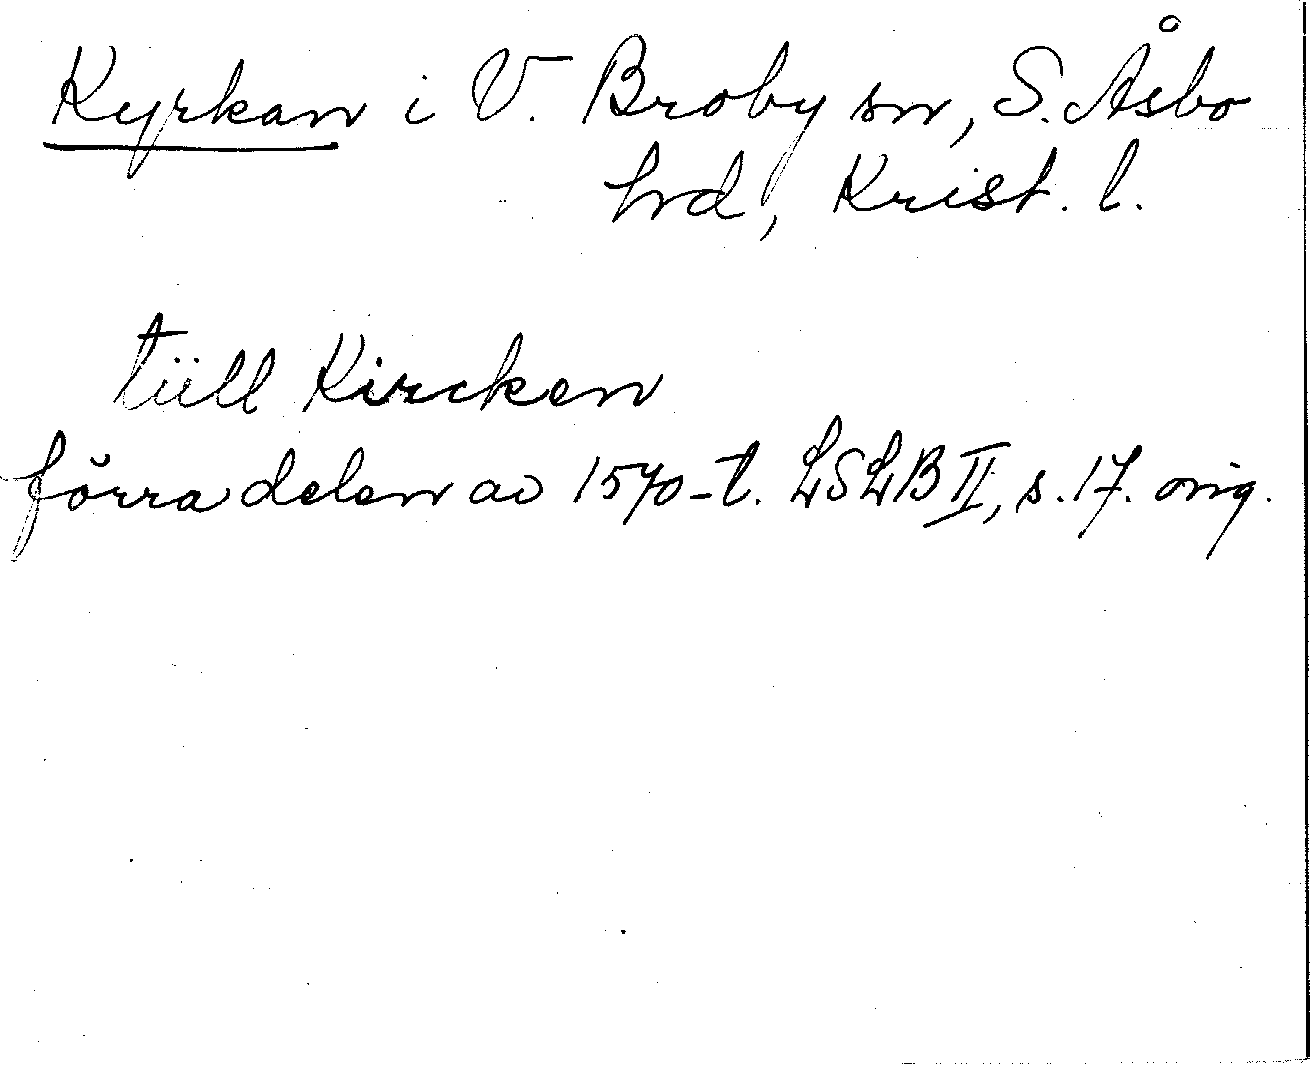 Kyrkan i V. Broby sn, S. Åsbo
hrd, Krist. l.
tiill Kircken
förra delen av 1570-t. LSLB II, s. 17. orig.